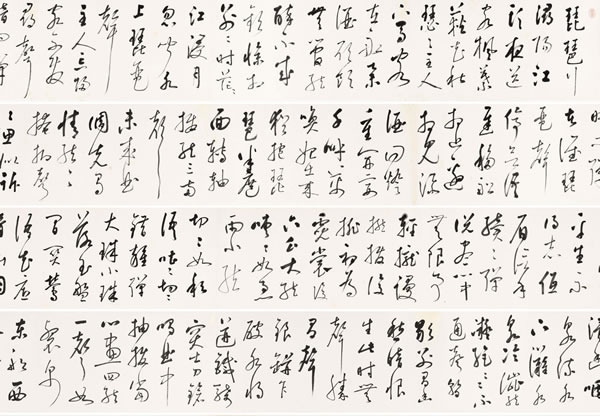 琵琶行
潯陽江
頭夜送
客楓葉
荻花秋
瑟瑟主人
下馬客
在船舉
酒欲飲
無管絃
醉不成
歡慘將
別時茫
江浸月
忽聞水
上琵琶
聲
主人忘歸
客不發
尋聲
琵
琶聲
停欲語
遲移船
相近邀
相見添
酒回燈
重開宴
千呼萬
喚始出來
猶抱琵
琶半遮
面轉軸
撥絃三兩
聲
未成曲
調先有
情絃〻
掩抑聲
〻思似訴
平生不
得志低
眉信手
續〻彈
說盡心中
無限事
輕攏慢
撚撥復
挑初為
霓裳後
六幺大絃
嘈〻如急
雨小絃
切〻如私
語嘈〻切〻
錯雜彈
大珠小珠
落玉盤
間關鶯
語花底
泉流水
下灘水
泉冷澀絃
凝絕不
通聲暫
歇別有幽
愁暗恨
生此時無
聲勝
有聲
銀缾乍
破水漿
迸鐵騎
突出刀鎗
鳴曲終
抽撥當
心畫四絃
一聲如
裂帛
東船西